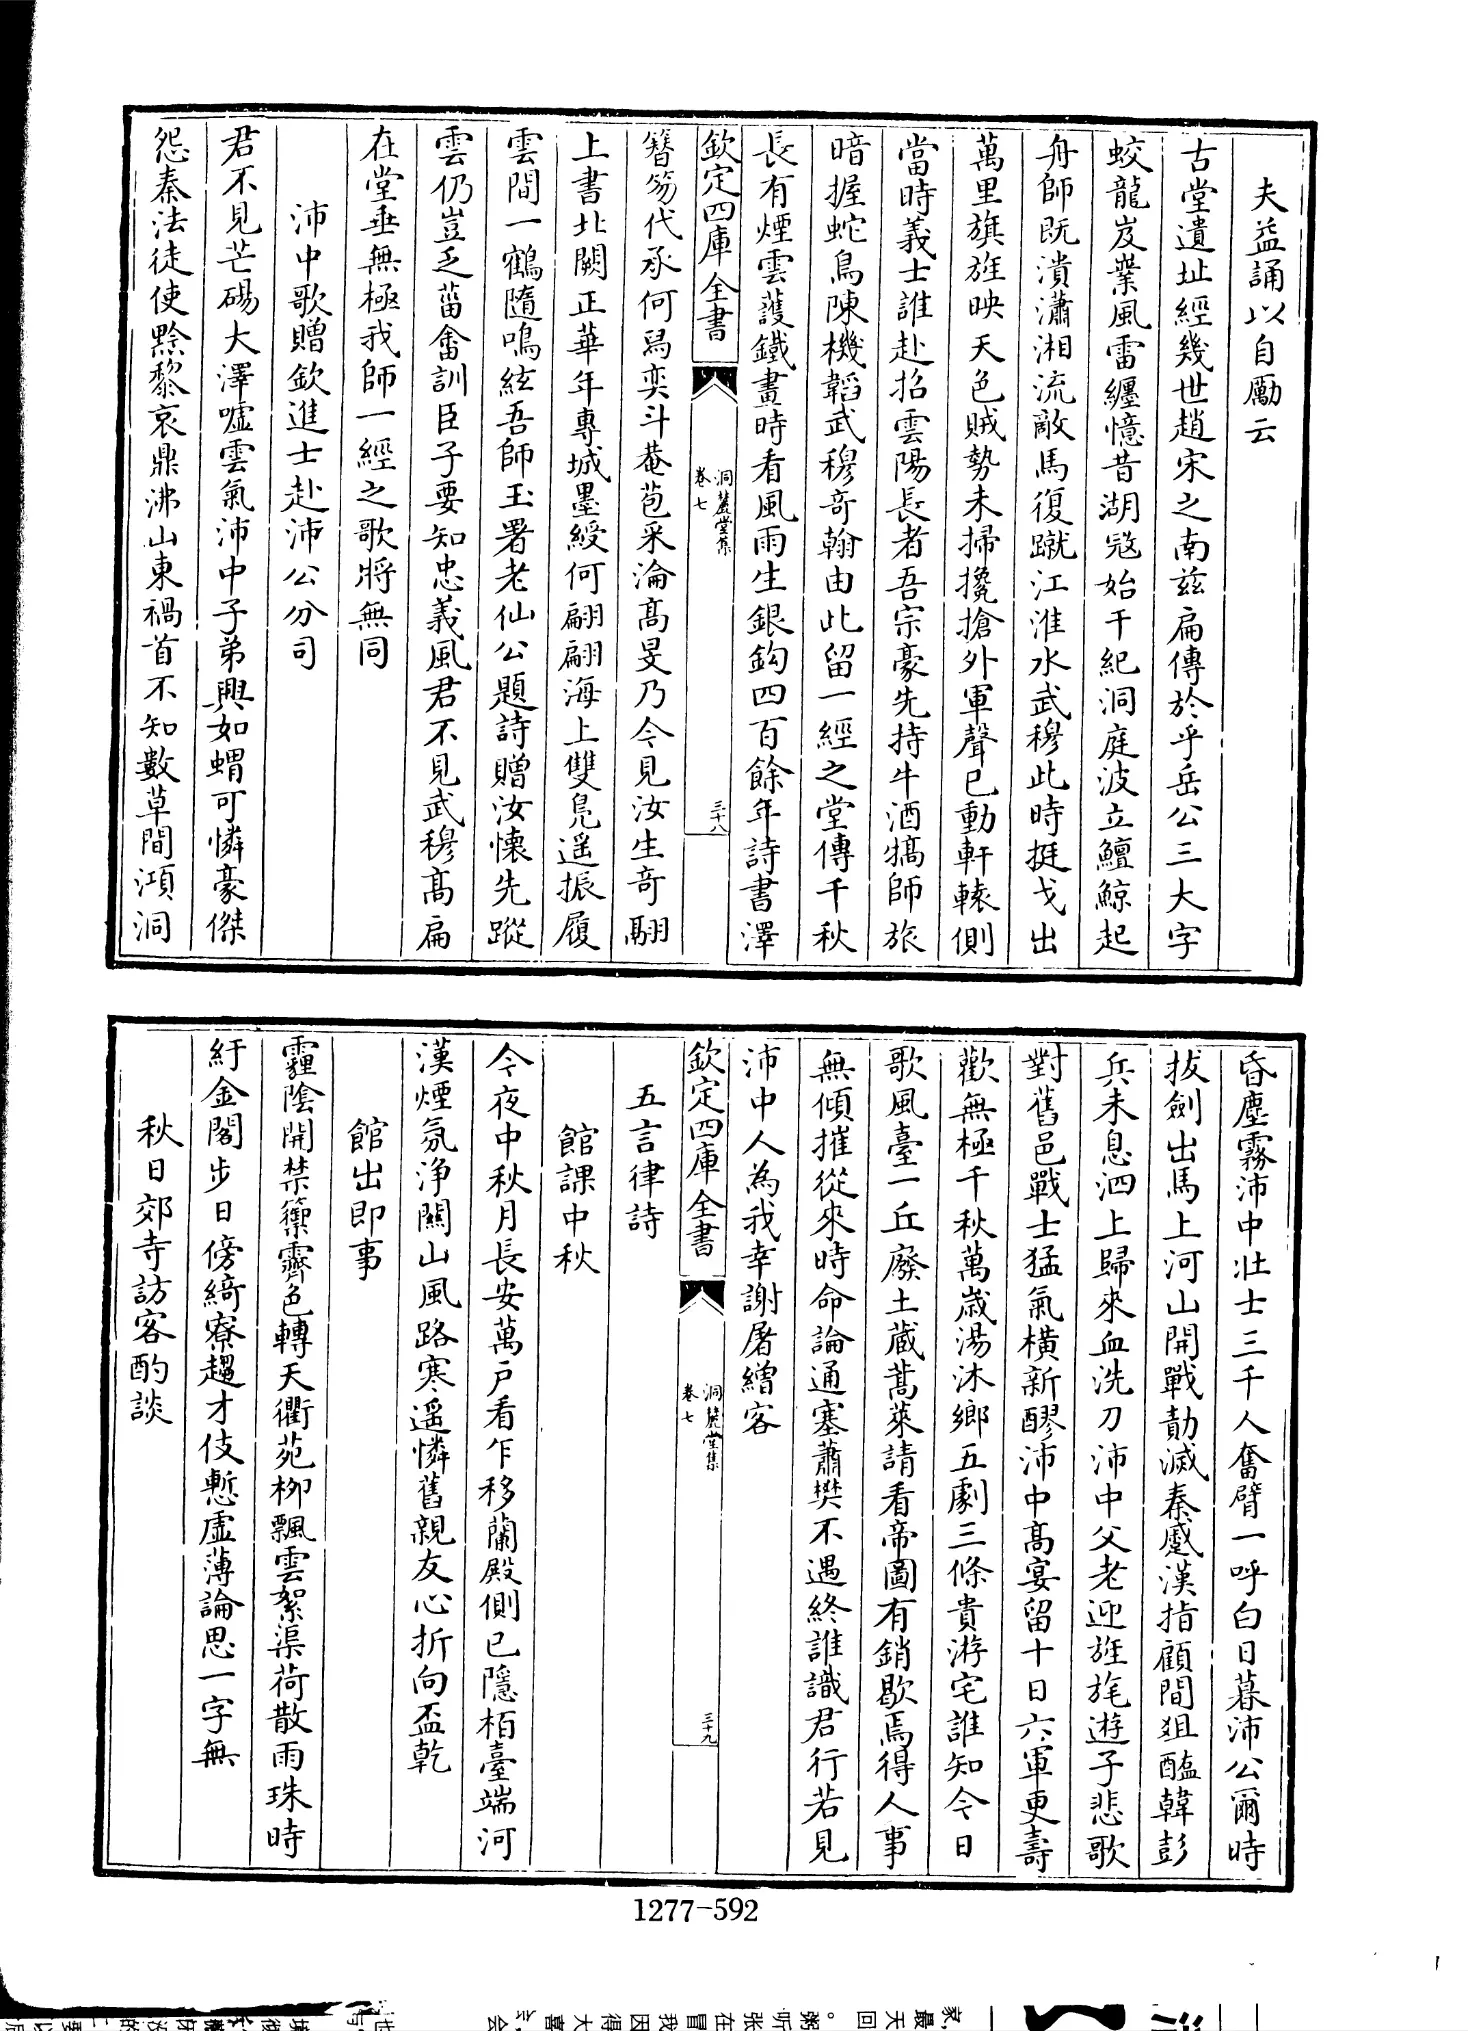 夫益誦以自勵云
古堂遺址經幾世趙宋之南兹扁傳於乎岳公三大字
蛟龍岌業風雷纒憶昔湖寇始干紀洞庭波立鱣鯨起
舟師既潰瀟湘流敵馬復蹴江淮水武穆此時挺戈出
萬里旗旌映天色賊勢未掃攙搶外軍聲已動軒轅側
當時義士誰赴招雲陽長者吾宗豪先持牛酒犒師旅
暗握蛇鳥陳機韜武穆奇翰由此留一經之堂傳千秋
長有煙雲護鐵畫時看風雨生銀鈎四百餘年詩書澤
欽定四庫全書
洞麓堂集
卷七
三十八
簪笏代承何舄奕斗菴苞采淪髙旻乃今見汝生奇翮
上書北闕正華年專城墨綬何翩翩海上雙鳧遥振履
雲間一鶴隨鳴絃吾師玉署老仙公題詩贈汝懷先蹤
雲仍豈乏菑畬訓臣子要知忠義風君不見武穆髙扁
在堂垂無極我師一經之歌將無同
沛中歌贈欽進士赴沛公分司
君不見芒碭大澤嘘雲氣沛中子弟興如蝟可憐豪傑
怨秦法徒使黔黎哀鼎沸山東禍首不知數草間澒洞
昏塵霧沛中壯士三千人奮臂一呼白日暮沛公爾時
拔劍出馬上河山開戰勣滅秦蹙漢指顧間狙醢韓彭
兵未息泗上歸來血洗刀沛中父老迎旌旄遊子悲歌
對舊邑戰士猛氣橫新醪沛中髙宴留十日六軍更壽
歡無極千秋萬歳湯沐鄉五劇三條貴游宅誰知今日
歌風臺一丘廢土蔵蒿萊請看帝圖有銷歇焉得人事
無傾摧從來時命論通塞蕭樊不遇終誰識君行若見
沛中人為我幸謝屠繒客
欽定四庫全書
洞麓堂集
卷七
三十九
五言律詩
館課中秋
今夜中秋月長安萬戸看乍移蘭殿側已隱栢臺端河
漢煙氛浄關山風路寒遥憐舊親友心折向盃乾
館出即事
霾陰開禁籞霽色轉天衢苑栁飄雲絮渠荷散雨珠時
紆金閣步日傍綺寮趨才伎慙虚薄論思一字無
秋日郊寺訪客酌談
1277-592